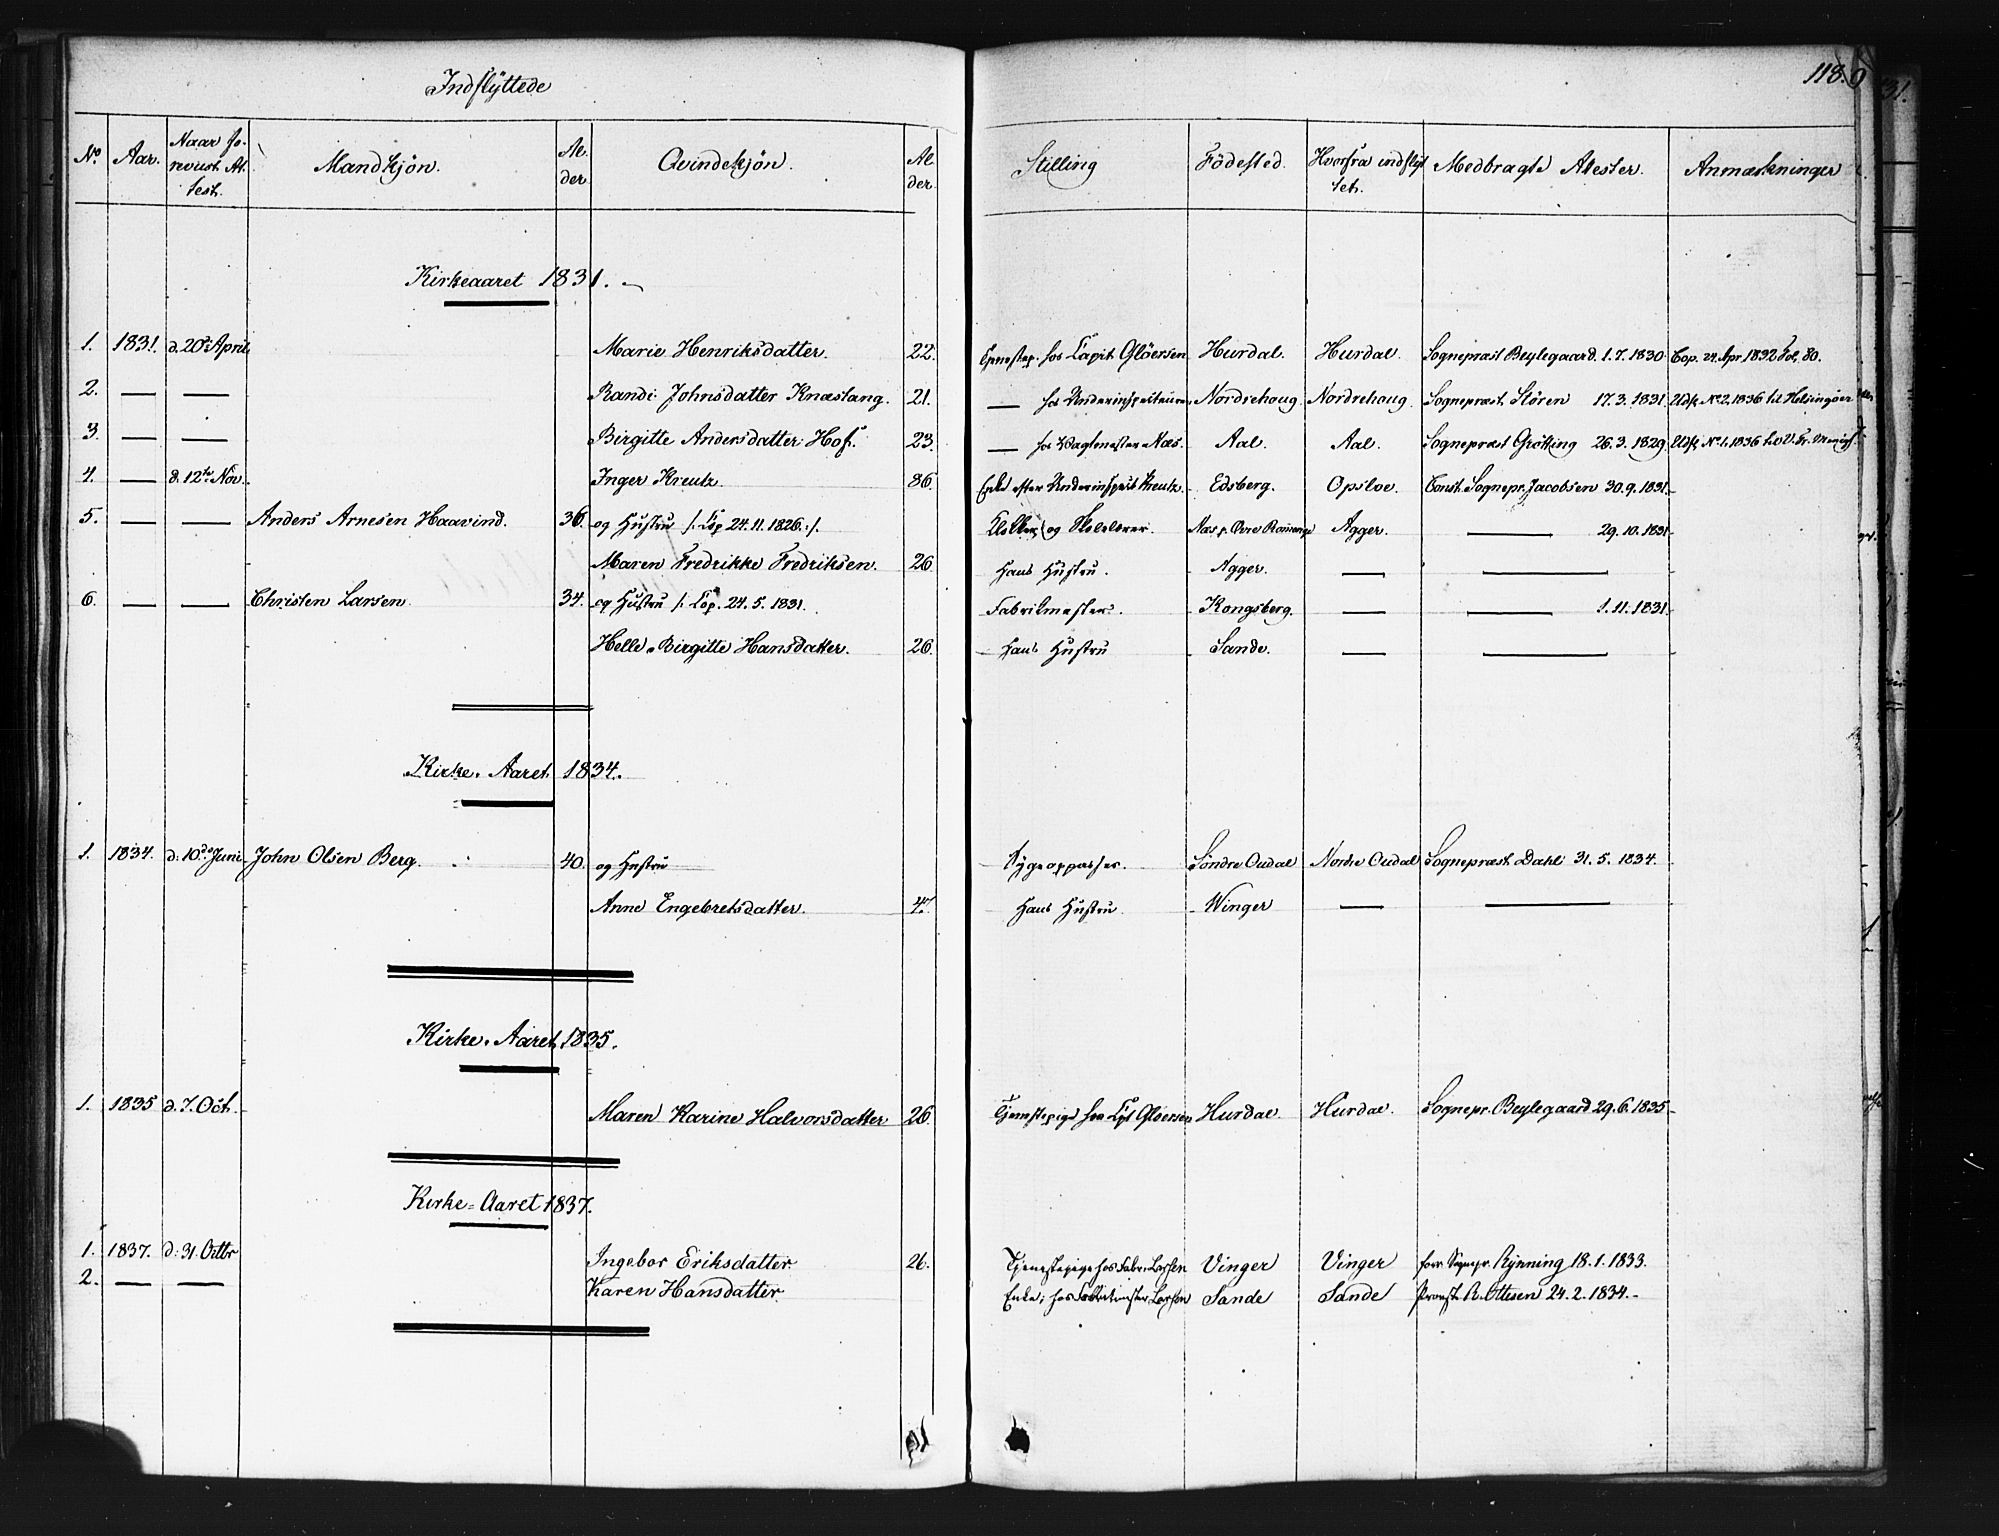 Indflyttede
118.
N° Aar. Naar fo- Mandkjön. Al- Qvindekjön. Al- Stilling Födested. Hvorfra indflyt Medbragte Atester. Anmærkninger
revist At- der der. tet.
test.
Kirkeaaret 1831.
1. 1831. d. 20de April Marie Henriksdatter. 22. Tjenestep. hos Capit Glöersen Hurdal. Hurdal. Sognepræst Beylegaard. 1.7.1830. Cop. 24 Apr 1832 Fol. 80.
2. — — Randi Johnsdatter Knæstang. 21. — hos Underinspecteuren Nordrehoug Nordrehoug. Sognepræst. Stören 17.3.1831 Udfl. No 2. 1836 til Helsingöer
3. — — Birgitte Andersdatter Hof. 23. — hos Vagtmester Næs. Aal. Aal. Sognepræst Grötting 26.3.1829. Udfl. No 1. 1836 til
4. — d. 12te Nov. Inger Kreutz. 86. Enke efter Underinspect Kreutz. Edsberg. Opsloe. Const. Sognepr. Jacobsen 30.9.1831.
5. — — Anders Arnesen Haavind. 36. og Hustru /: Cop 24.11.1826. :/. Klokker og Skolelærer. Næs p. Övre Romerige Agger. — 29.10.1831.
Maren Fredrikke Fredriksen. 26 Hans Hustru. Agger. — —
6. — — Christen Larsen. 34. og Hustru /: Cop. 24.5.1831. Fabrikmester. Kongsberg. — — 1.11.1831.
Helle Birgitte Hansdatter. 26. Hans Hustru Sande. — —
Kirke-Aaret 1834.
1. 1834. d. 10de Juni John Olsen Berg. 40. og Hustru Sygeoppasser. Söndre Oudal Nordre Oudal Sognepræst Dahl 31.5.1834.
Anne Engebretsdatter. 47. Hans Hustru. Winger — —
Kirke-Aaret 1835.
1. 1835 d. 7. Oct. Maren Karine Halvorsdatter 26. Tjenestepige hos Cpt Glöersen Hurdal. Hurdal. Sognepr. Beylegaard 29.6.1835
Kirke-Aaret 1837.
1. 1837. d: 31. Octbr Ingebor Eriksdatter. 26. Tjenestepige hos Fabr. Larsen Vinger Vinger forr. Sognepr. Rynning 18.1.1833.
2. — — Karen Hansdatter Enke; hos Fabrikmester Larsen Sande Sande Provst R. Ottesen 24.2.1834.